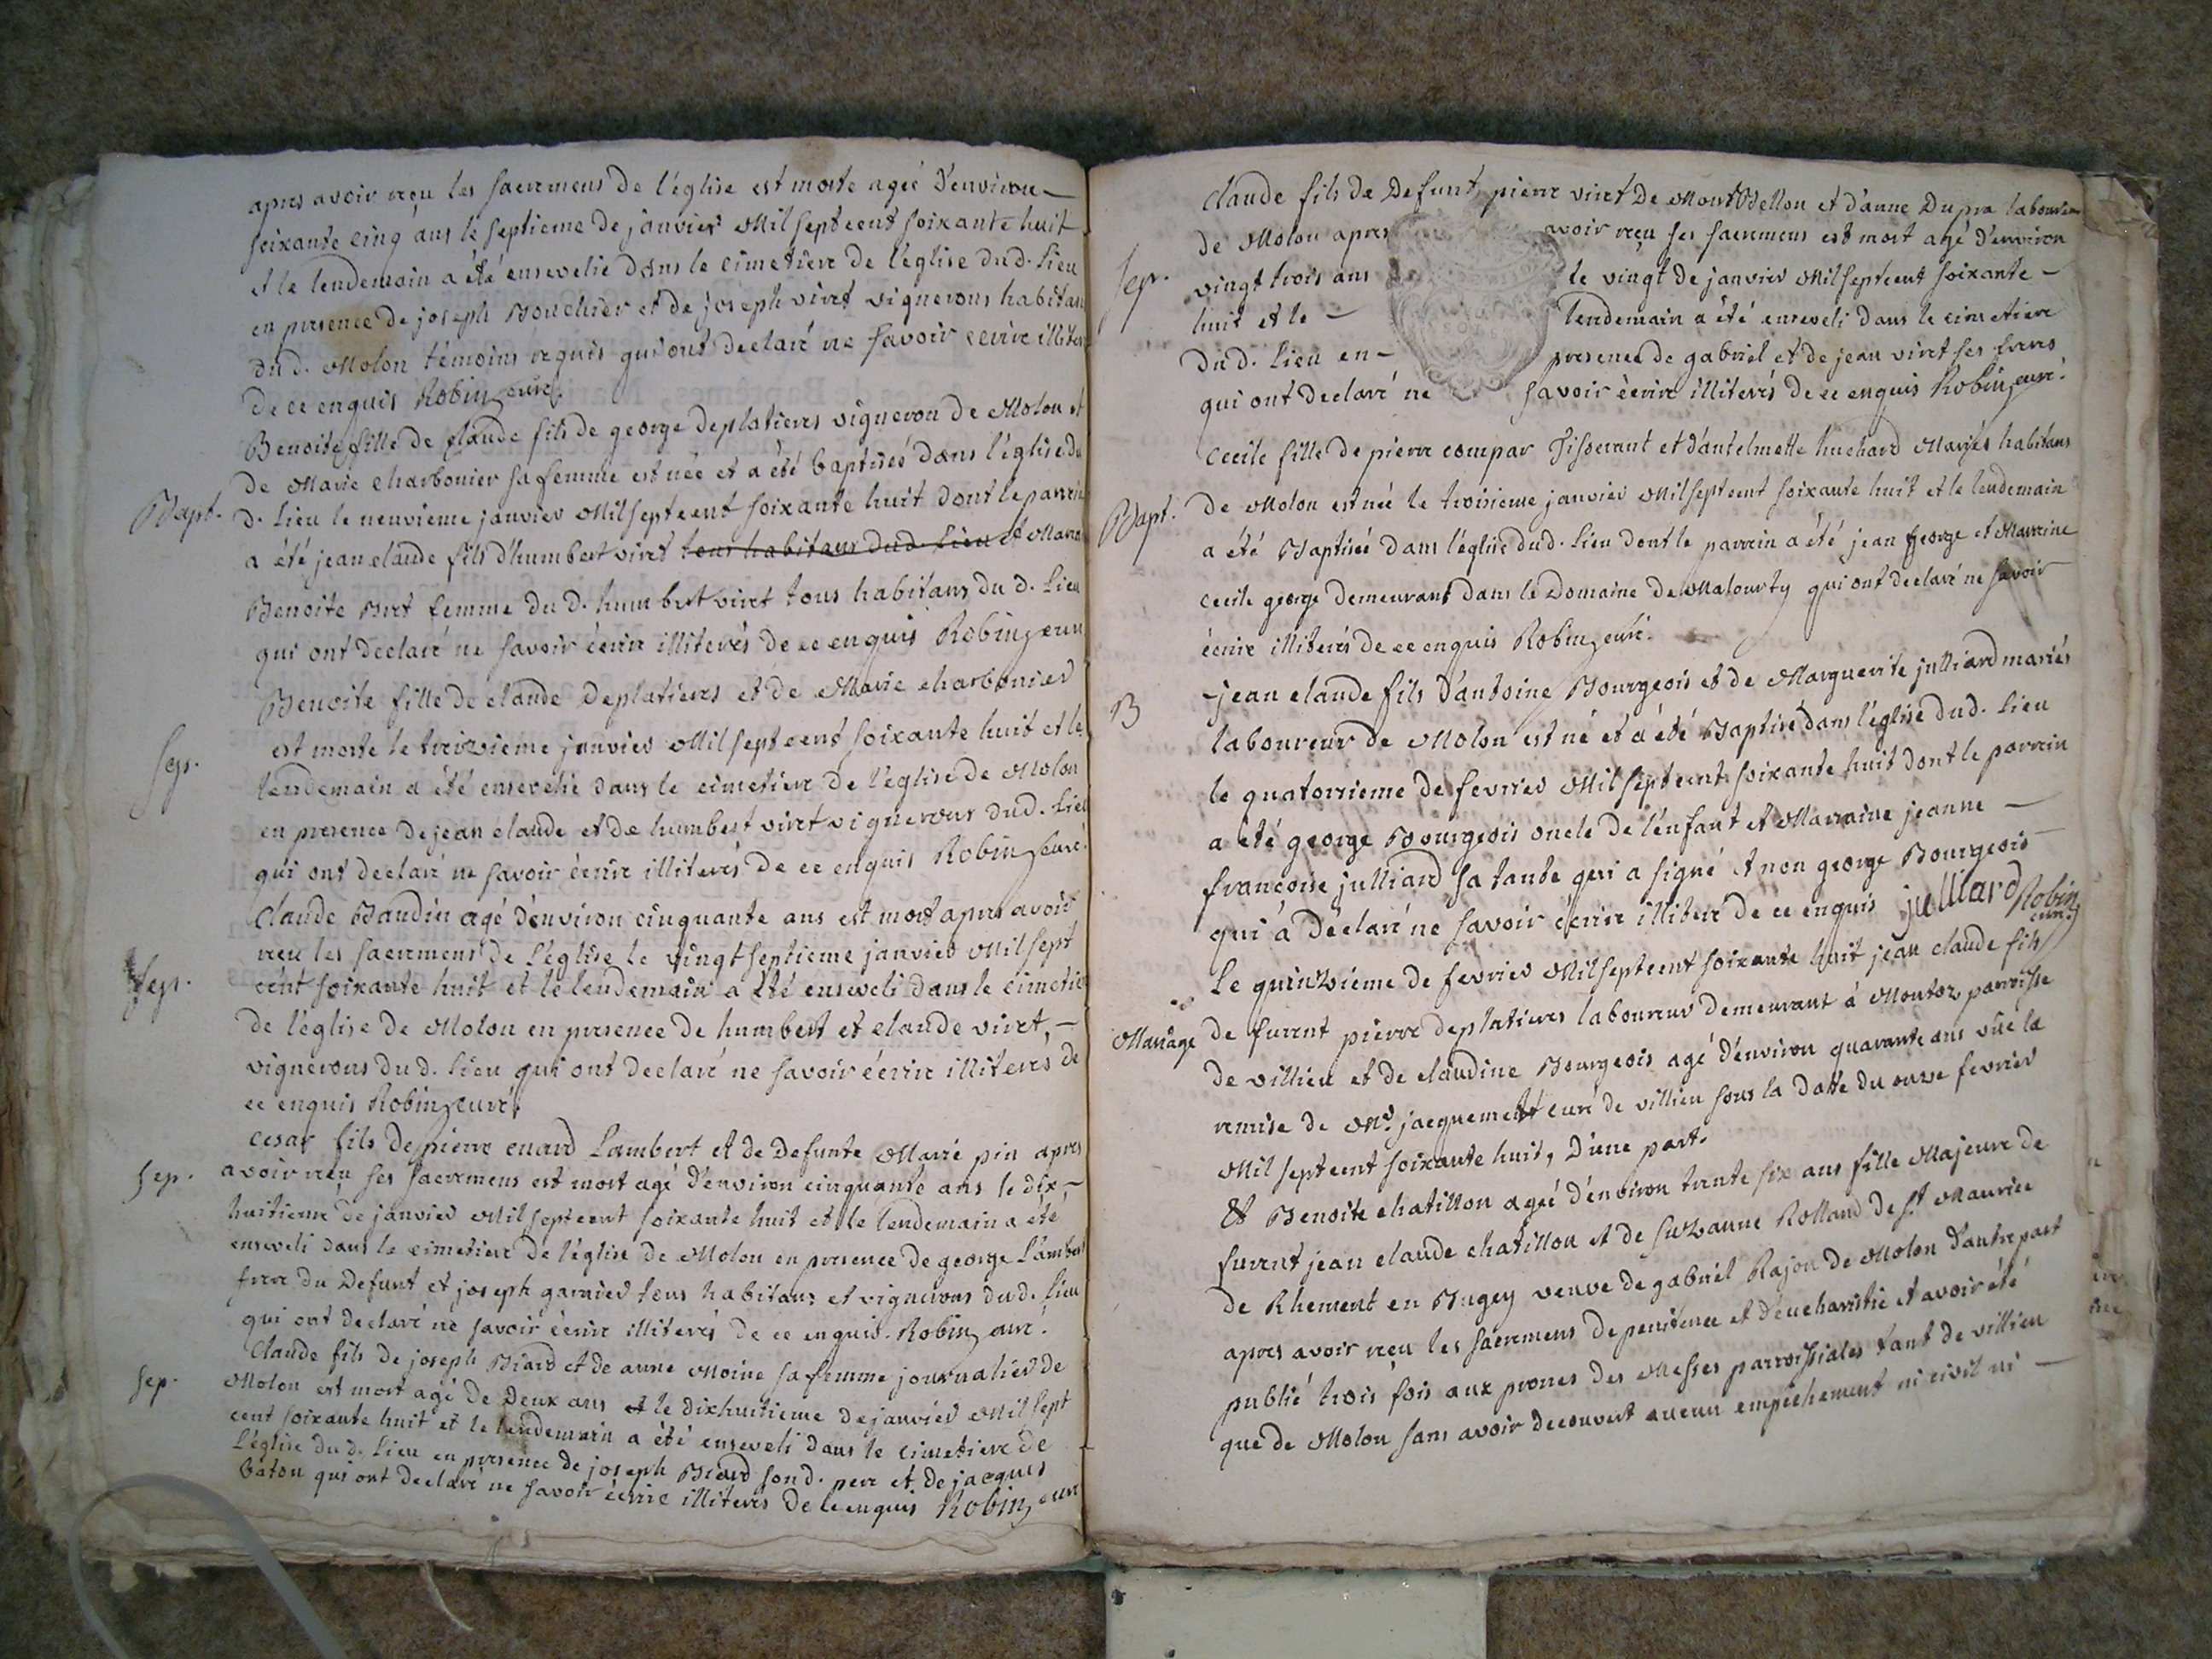 apres avoir reçu les sacremens de l'église est morte agée d'environ —
soixante cinq ans le septieme de janvier Mil septcent soixante huit
et le lendemain a été ensevelie dans le cimetiere de l'église dud. Lieu
en presence de joseph Bouchier et de joseph viret vignerons habitan
dud. Molon témoins requis qui ont declaré ne savoir écrire illiter
de ce enquis Robin curé.
Benoite fille de Claude fils de george deplatieres vigneron de Molon et
de Marie charbonier sa femme est née et a été baptisée dans l'église du
Bapt.
d. Lieu le neuvieme janvier Mil septcent soixante huit dont le parrin
a été jean claude fils d'humbert viret tous habitans dud. Lieu et Marre
Benoite femme du d. humbert viret tous habitans du d. Lieu
qui ont declaré ne savoir écrire illiterés de ce enquis Robin curé
Benoite fille de claude Deplatieres et de Marie charbonier
Sep.
est morte le treizieme janvier Mil septcent soixante huit et le
lendemain a été ensevelie dans le cimetiere de l'église de Molon
en presence de jean claude et de humbert viret vignerons dud. Lieu
qui ont declaré ne savoir écrire illiterés de ce enquis Robin curé.
Claude Baudin agé d'environ cinquante ans est mort apres avoir
reçu les sacremens de l'église le vingt septieme janvier Mil sept
Sep.
cent soixante huit et le lendemain a été enseveli dans le cimetie
de l'église de Molon en presence de humbert et claude viret, —
vignerons du d. Lieu qui ont declaré ne savoir écrire illiterés de
ce enquis Robin curé.
cesar fils de pierre cuard Lambert et de Defunte Marie pin apres
Sep.
avoir reçu ses sacremens est mort agé d'environ cinquante ans le dix —
huitieme de janvier Mil septcent soixante huit et le lendemain a été
enseveli dans le cimetiere de l'église de Molon en presence de george Lambert
frere du Defunt et joseph garnier tous habitans et vignerons dud. Lieu
qui ont declaré ne savoir écrire illiterés de ce enquis. Robin curé.
Claude fils de joseph Biard et de anne Moine sa femme journalier de
Sep.
Molon est mort agé de Deux ans et le dixhuitieme de janvier Mil sept
cent soixante huit et le lendemain a été enseveli dans le cimetiere de
L'église du d. Lieu en presence de joseph Biard son d. pere et de jacques
baton qui ont declaré ne savoir écrire illiterés de ce enquis Robin curé
Claude fils de Defunt pierre viret de et d'anne Dupra laboureur
de Molon apres avoir reçu ses sacremens est mort agé d'environ
Sep.
vingt trois ans le vingt de janvier Mil septcent soixante —
huit et le — lendemain a été enseveli dans le cimetiere
du d. Lieu en — presence de gabriel et de jean viret ses freres
qui ont declaré ne savoir écrire illiterés de ce enquis Robin curé.
Cecile fille de pierre compar Tisserant et d'antelmette huchard Mariés habitans
Bapt.
de Molon est née le troisieme janvier Mil septcent soixante huit et le lendemain
a été Baptisée dans l'église dud. Lieu dont le parrein a été jean george et Marreine
cecile george demeurant dans le Domaine de Malourty qui ont declaré ne savoir
écrire illiterés de ce enquis Robin curé.
jean claude fils d'antoine Bourgeois et de Marguerite julliard mariés
B
laboureur de Molon est né et a été Baptisé dans l'église dud. Lieu
le quatorzieme de fevrier Mil septcent soixante huit dont le parrein
a été george Bourgeois oncle de l'enfant et Marraine jeanne —
francoise julliard sa tante qui a signé et non george Bourgeois —
qui a declaré ne savoir écrire illiteré de ce enquis julliard Robin
curé
Le quinzieme de fevrier Mil septcent soixante huit jean claude fils
Mariage
de furent pierre deplatieres laboureur demeurant à Montoz parroisse
de villieu et de claudine Bourgeois agé d'environ quarante ans vüe la
remise de Mr. jacquemett curé de villieu sous la datte du onze fevrier
Mil septcent soixante huit, D'une part.
Et Benoite chatillon agée d'environ trente six ans fille Majeure de
furent jean claude chatillon et de suzanne Rolland de St. Maurice
de Rhement en Bugey veuve de gabriel Rajon de Molon d'autre part
apres avoir reçu les sacremens de penitence et d'eucharistie et avoir été
publié trois fois aux prones des Messes parroissiales tant de villieu
que de Molon sans avoir decouvert aucun empechement ni civil ni —